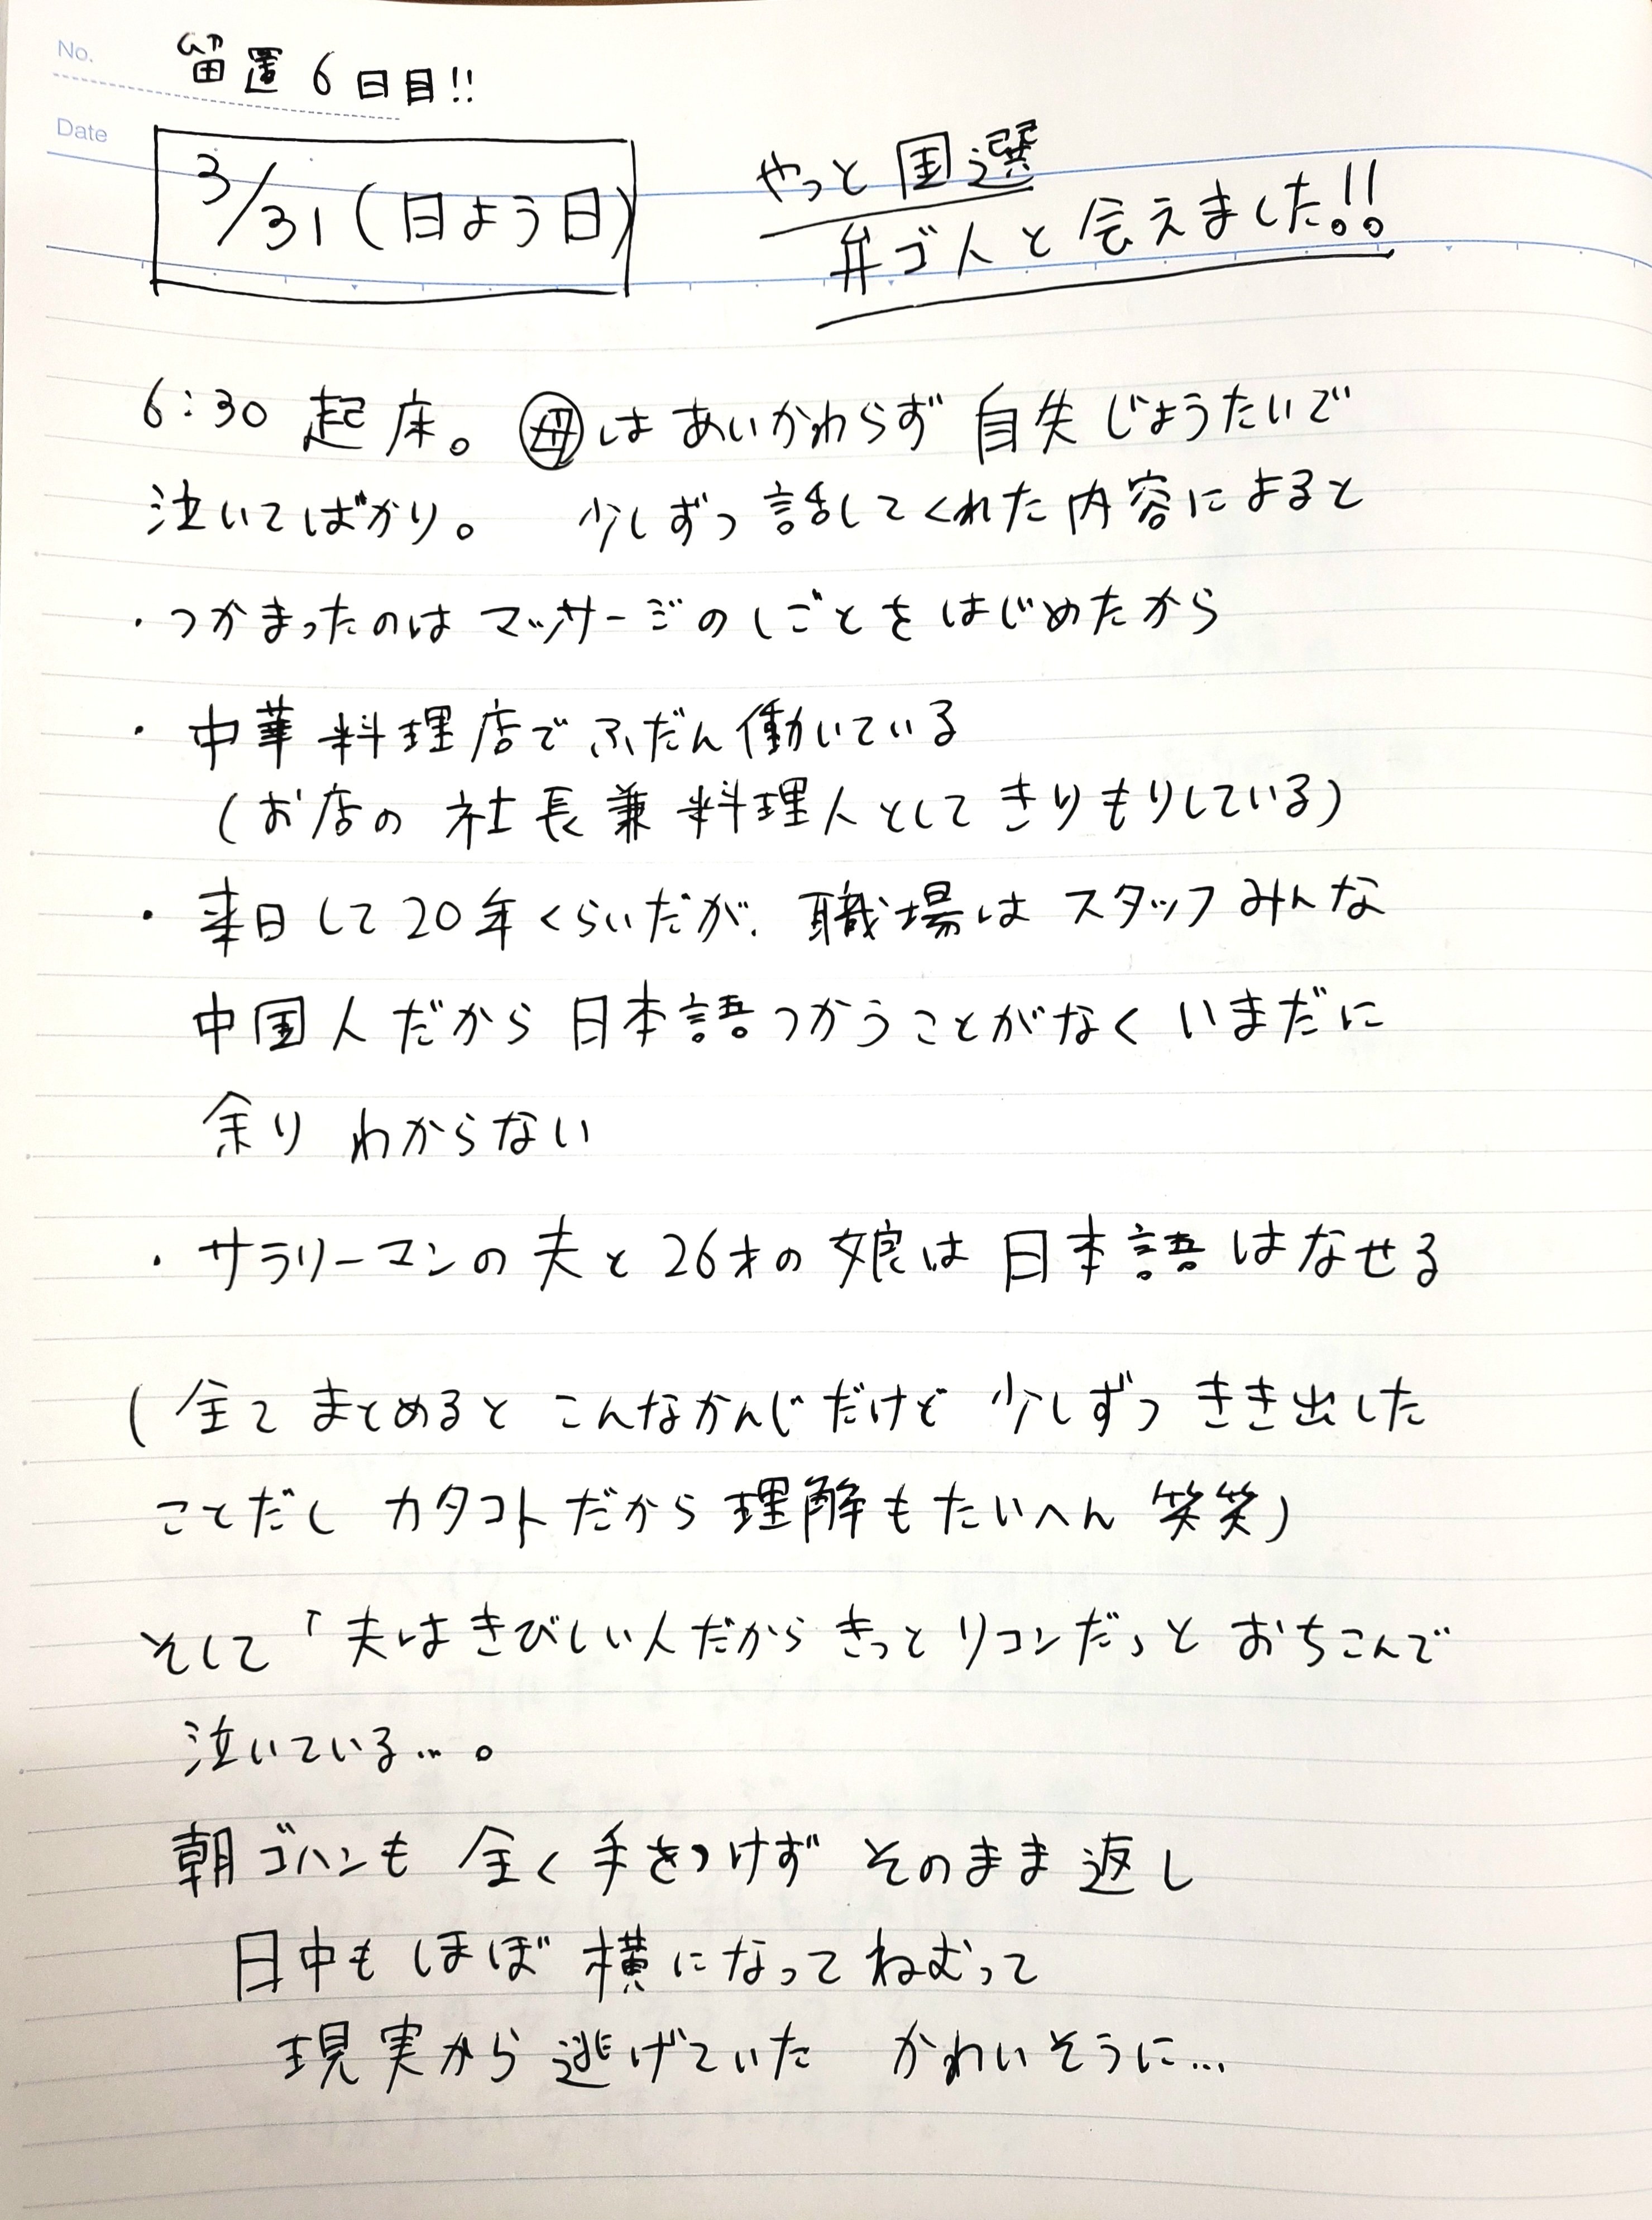 No.
留置6日目!!
Date
3/31(日よう日)
やっと国選
弁ゴ人と会えました!!
6:30 起床。 母はあいかわらず 自失じょうたいで
泣いてばかり。 少しずつ 話してくれた内容によると
・つかまったのは マッサージのしごとをはじめたから
・中華料理店でふだん働いている
(お店の 社長兼料理人としてきりもりしている)
・来日して20年くらいだが、職場はスタッフみんな
中国人だから日本語つかうことがなくいまだに
余り わからない
・サラリーマンの夫と26才の娘は日本語はなせる
(全てまとめるとこんなかんじだけど 少しずつきき出した
ことだし カタコトだから理解もたいへん 笑笑)
そして「夫はきびしい人だからきっとリコンだ」とおちこんで
泣いている…。
朝ゴハンも 全く手をつけず そのまま返し
日中もほぼ横になってねむって
現実から逃げていた かわいそうに…